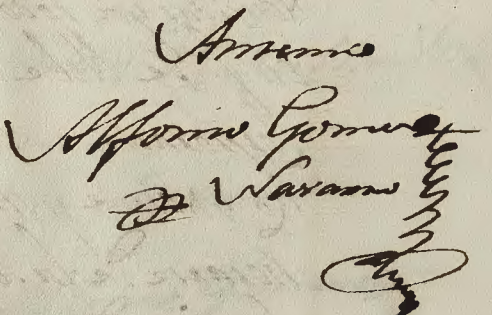 Antonio
Alfonso Gomez
de Navarro